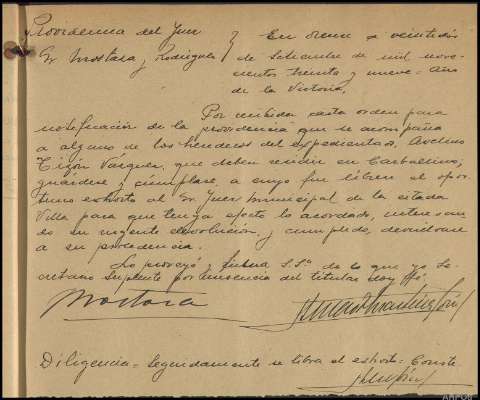 Providencia del Juez
Sr Mostaza y Rodriguez
En Orense a veintidós
de Setiembre de mil nove-
cientos treinta y nueve - Año
de la Victoria,
Por recibida carta orden para
notificación de la providencia que se acompaña
a alguno de los herederos del expedientado, Avelino
Tizón Vázquez, que deben residir en Carballino;
guárdese y cúmplase, a cuyo fin líbrese el opor-
tuno exhorto al Sr Juez Municipal de la citada
Villa para que tenga efecto lo acordado, interesan-
do su urgente devolución, y cumplido, devuélvase
a su procedencia.
Lo proveyó y firma S.Sª de lo que yo Se-
cretario Suplente por ausencia del titular doy fé
Mostaza
Diligencia = Seguidamente se libra el exhorto = Conste